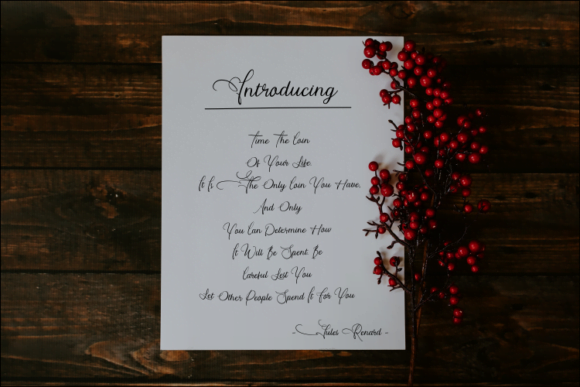 Introducing
Time The Coin
Of Your Life
It Is The Only Coin You Have,
And Only
You Can Determine How
It Will Be Spent Be
Careful Lest You
Let Other People Spend It For You
- Jules Renard -